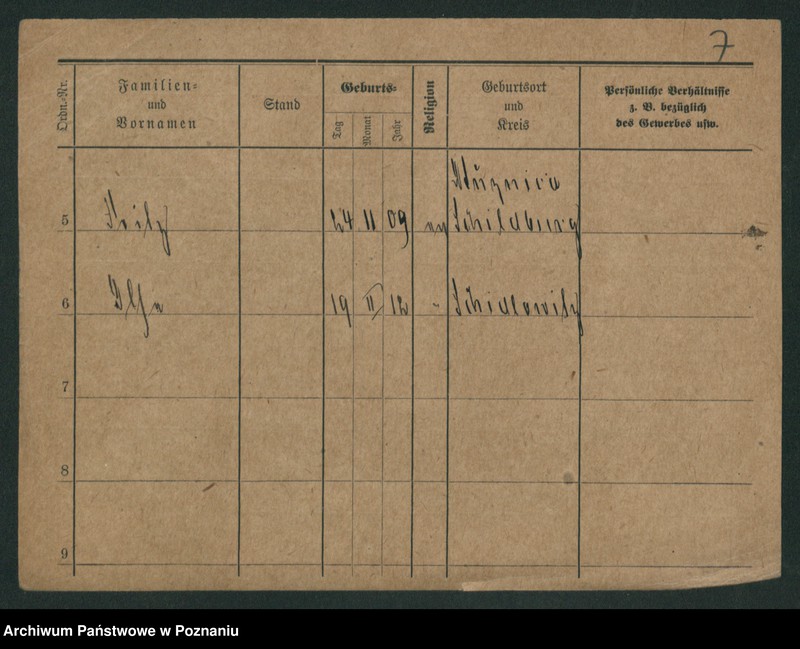 7
Ordn.-Nr.
Familien=
und
Vornamen
Stand
Geburts=
Tag
Monat
Jahr
Religion
Geburtsort
und
Kreis
Persönliche Verhältnisse
z. B. bezüglich
des Gewerbes usw.
5 Fritz 24 II 09 ev Schildberg
6 Ilse 19 II 12 " Schidlowitz
7
8
9
Archiwum Państwowe w Poznaniu